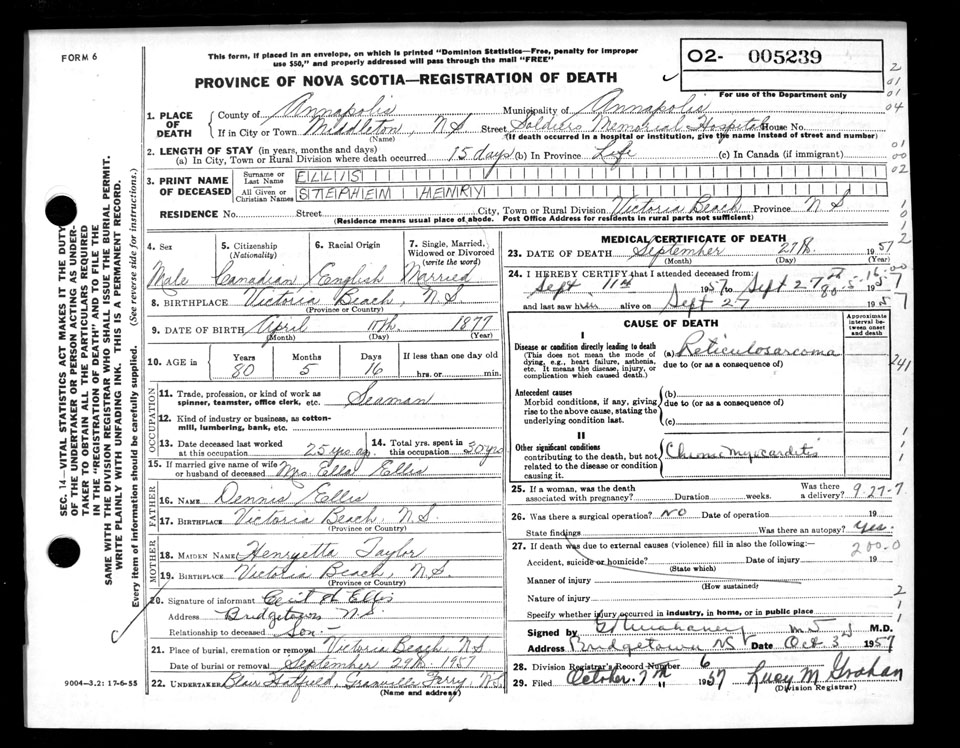 FORM 6
This form, if placed in an envelope, on which is printed "Dominion Statistics—Free, penalty for improper
use $50," and properly addressed will pass through the mail "FREE"
PROVINCE OF NOVA SCOTIA—REGISTRATION OF DEATH
O2- 005239
For use of the Department only
2
01
01
04
1. PLACE OF DEATH
County of Annapolis Municipality of Annapolis
If in City or Town Middleton, NS Street Soldiers Memorial Hospital House No.
(Name) (If death occurred in a hospital or institution, give the name instead of street and number)
2. LENGTH OF STAY (in years, months and days)
(a) In City, Town or Rural Division where death occurred 15 days (b) In Province Life (c) In Canada (if immigrant)
01
00
02
3. PRINT NAME OF DECEASED
Surname or Last Name ELLIS
All Given or Christian Names STEPHEN HENRY
RESIDENCE No. Street City, Town or Rural Division Victoria Beach Province N S
(Residence means usual place of abode. Post Office Address for residents in rural parts not sufficient)
4. Sex Male
5. Citizenship (Nationality) Canadian
6. Racial Origin English
7. Single, Married, Widowed or Divorced (write the word) Married
8. BIRTHPLACE Victoria Beach, N.S.
(Province or Country)
9. DATE OF BIRTH April 11th 1877
(Month) (Day) (Year)
10. AGE in Years 80 Months 5 Days 16 If less than one day old hrs. or min.
OCCUPATION
11. Trade, profession, or kind of work as spinner, teamster, office clerk, etc. Seaman
12. Kind of industry or business, as cotton-mill, lumbering, bank, etc.
13. Date deceased last worked at this occupation 25 yrs ago
14. Total yrs. spent in this occupation 30 yrs
15. If married give name of wife or husband of deceased Mrs. Ella Ellis
FATHER
16. NAME Dennis Ellis
17. BIRTHPLACE Victoria Beach, N.S.
(Province or Country)
MOTHER
18. MAIDEN NAME Henryetta Taylor
19. BIRTHPLACE Victoria Beach, N.S.
(Province or Country)
20. Signature of informant Ellis
Address Bridgetown N.S.
Relationship to deceased Son
21. Place of burial, cremation or removal Victoria Beach, N.S
Date of burial or removal September 29th 1957
22. UNDERTAKER Blair Hatfield, Granville Ferry, N.S.
(Name and address)
MEDICAL CERTIFICATE OF DEATH
23. DATE OF DEATH September 27th 1957
(Month) (Day) (Year)
24. I HEREBY CERTIFY that I attended deceased from
Sept. 11th 1957 to Sept 27th 1957
80-5-16-00
and last saw him alive on Sept 27 1957
CAUSE OF DEATH
Approximate interval between onset and death
I
Disease or condition directly leading to death
(This does not mean the mode of dying, e.g., heart failure, asthenia, etc. It means the disease, injury, or complication which caused death.)
(a) Reticulosarcoma
due to (or as a consequence of)
241
Antecedent causes
Morbid conditions, if any, giving rise to the above cause, stating the underlying condition last.
(b)
due to (or as a consequence of)
(c)
II
Other significant conditions
contributing to the death, but not related to the disease or condition causing it.
Chronic myocarditis
25. If a woman, was the death associated with pregnancy? Duration weeks. Was there a delivery? 9-27-7
26. Was there a surgical operation? NO Date of operation 19
State findings Was there an autopsy? Yes.
27. If death was due to external causes (violence) fill in also the following:
200.0
Accident, suicide or homicide? Date of injury 19
(State which)
Manner of injury
(How sustained)
Nature of injury
Specify whether injury occurred in industry, in home, or in public place
Signed by M.D.
Address Bridgetown NS Date Oct 3 1957
28. Division Registrar's Record Number 6
29. Filed October 7th 1957 Lucy M Graham
(Division Registrar)
SEC. 14—VITAL STATISTICS ACT MAKES IT THE DUTY
OF THE UNDERTAKER OR PERSON ACTING AS UNDER-
TAKER TO OBTAIN ALL THE PARTICULARS REQUIRED
IN THE "REGISTRATION OF DEATH" AND TO FILE THE
SAME WITH THE DIVISION REGISTRAR WHO SHALL ISSUE THE BURIAL PERMIT.
WRITE PLAINLY WITH UNFADING INK. THIS IS A PERMANENT RECORD.
Every item of information should be carefully supplied. (See reverse side for instructions.)
9004—3.2: 17-6-55